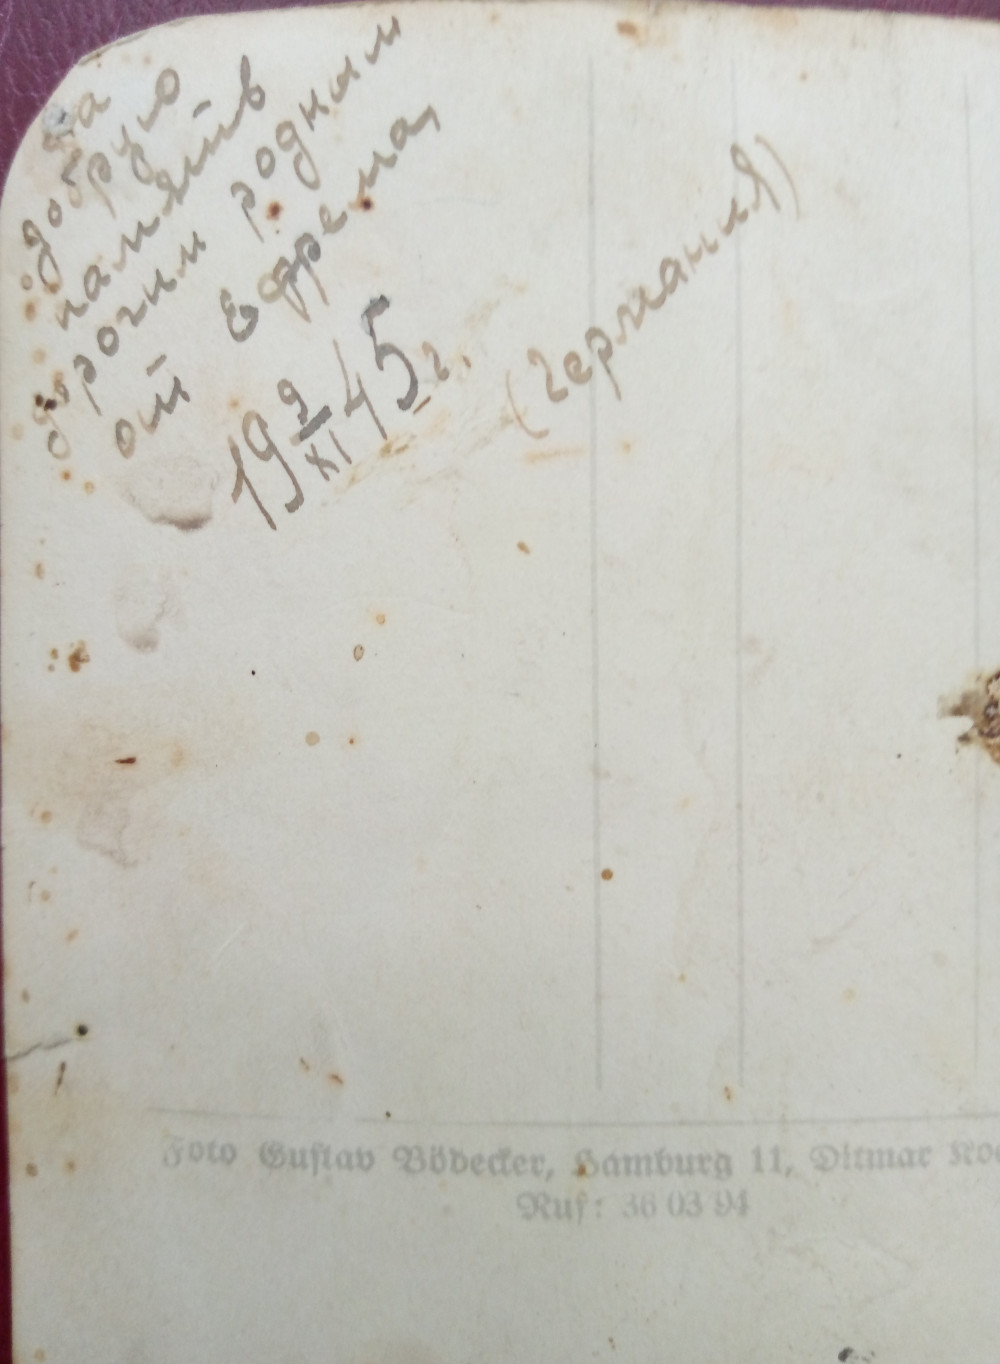 На
добрую
память
дорогим родным
от Ефрема,
19 9/XI 45 г. (Германия)
Foto Gustav Bödecker, Hamburg 11, Ditmar
Ruf: 36 03 94